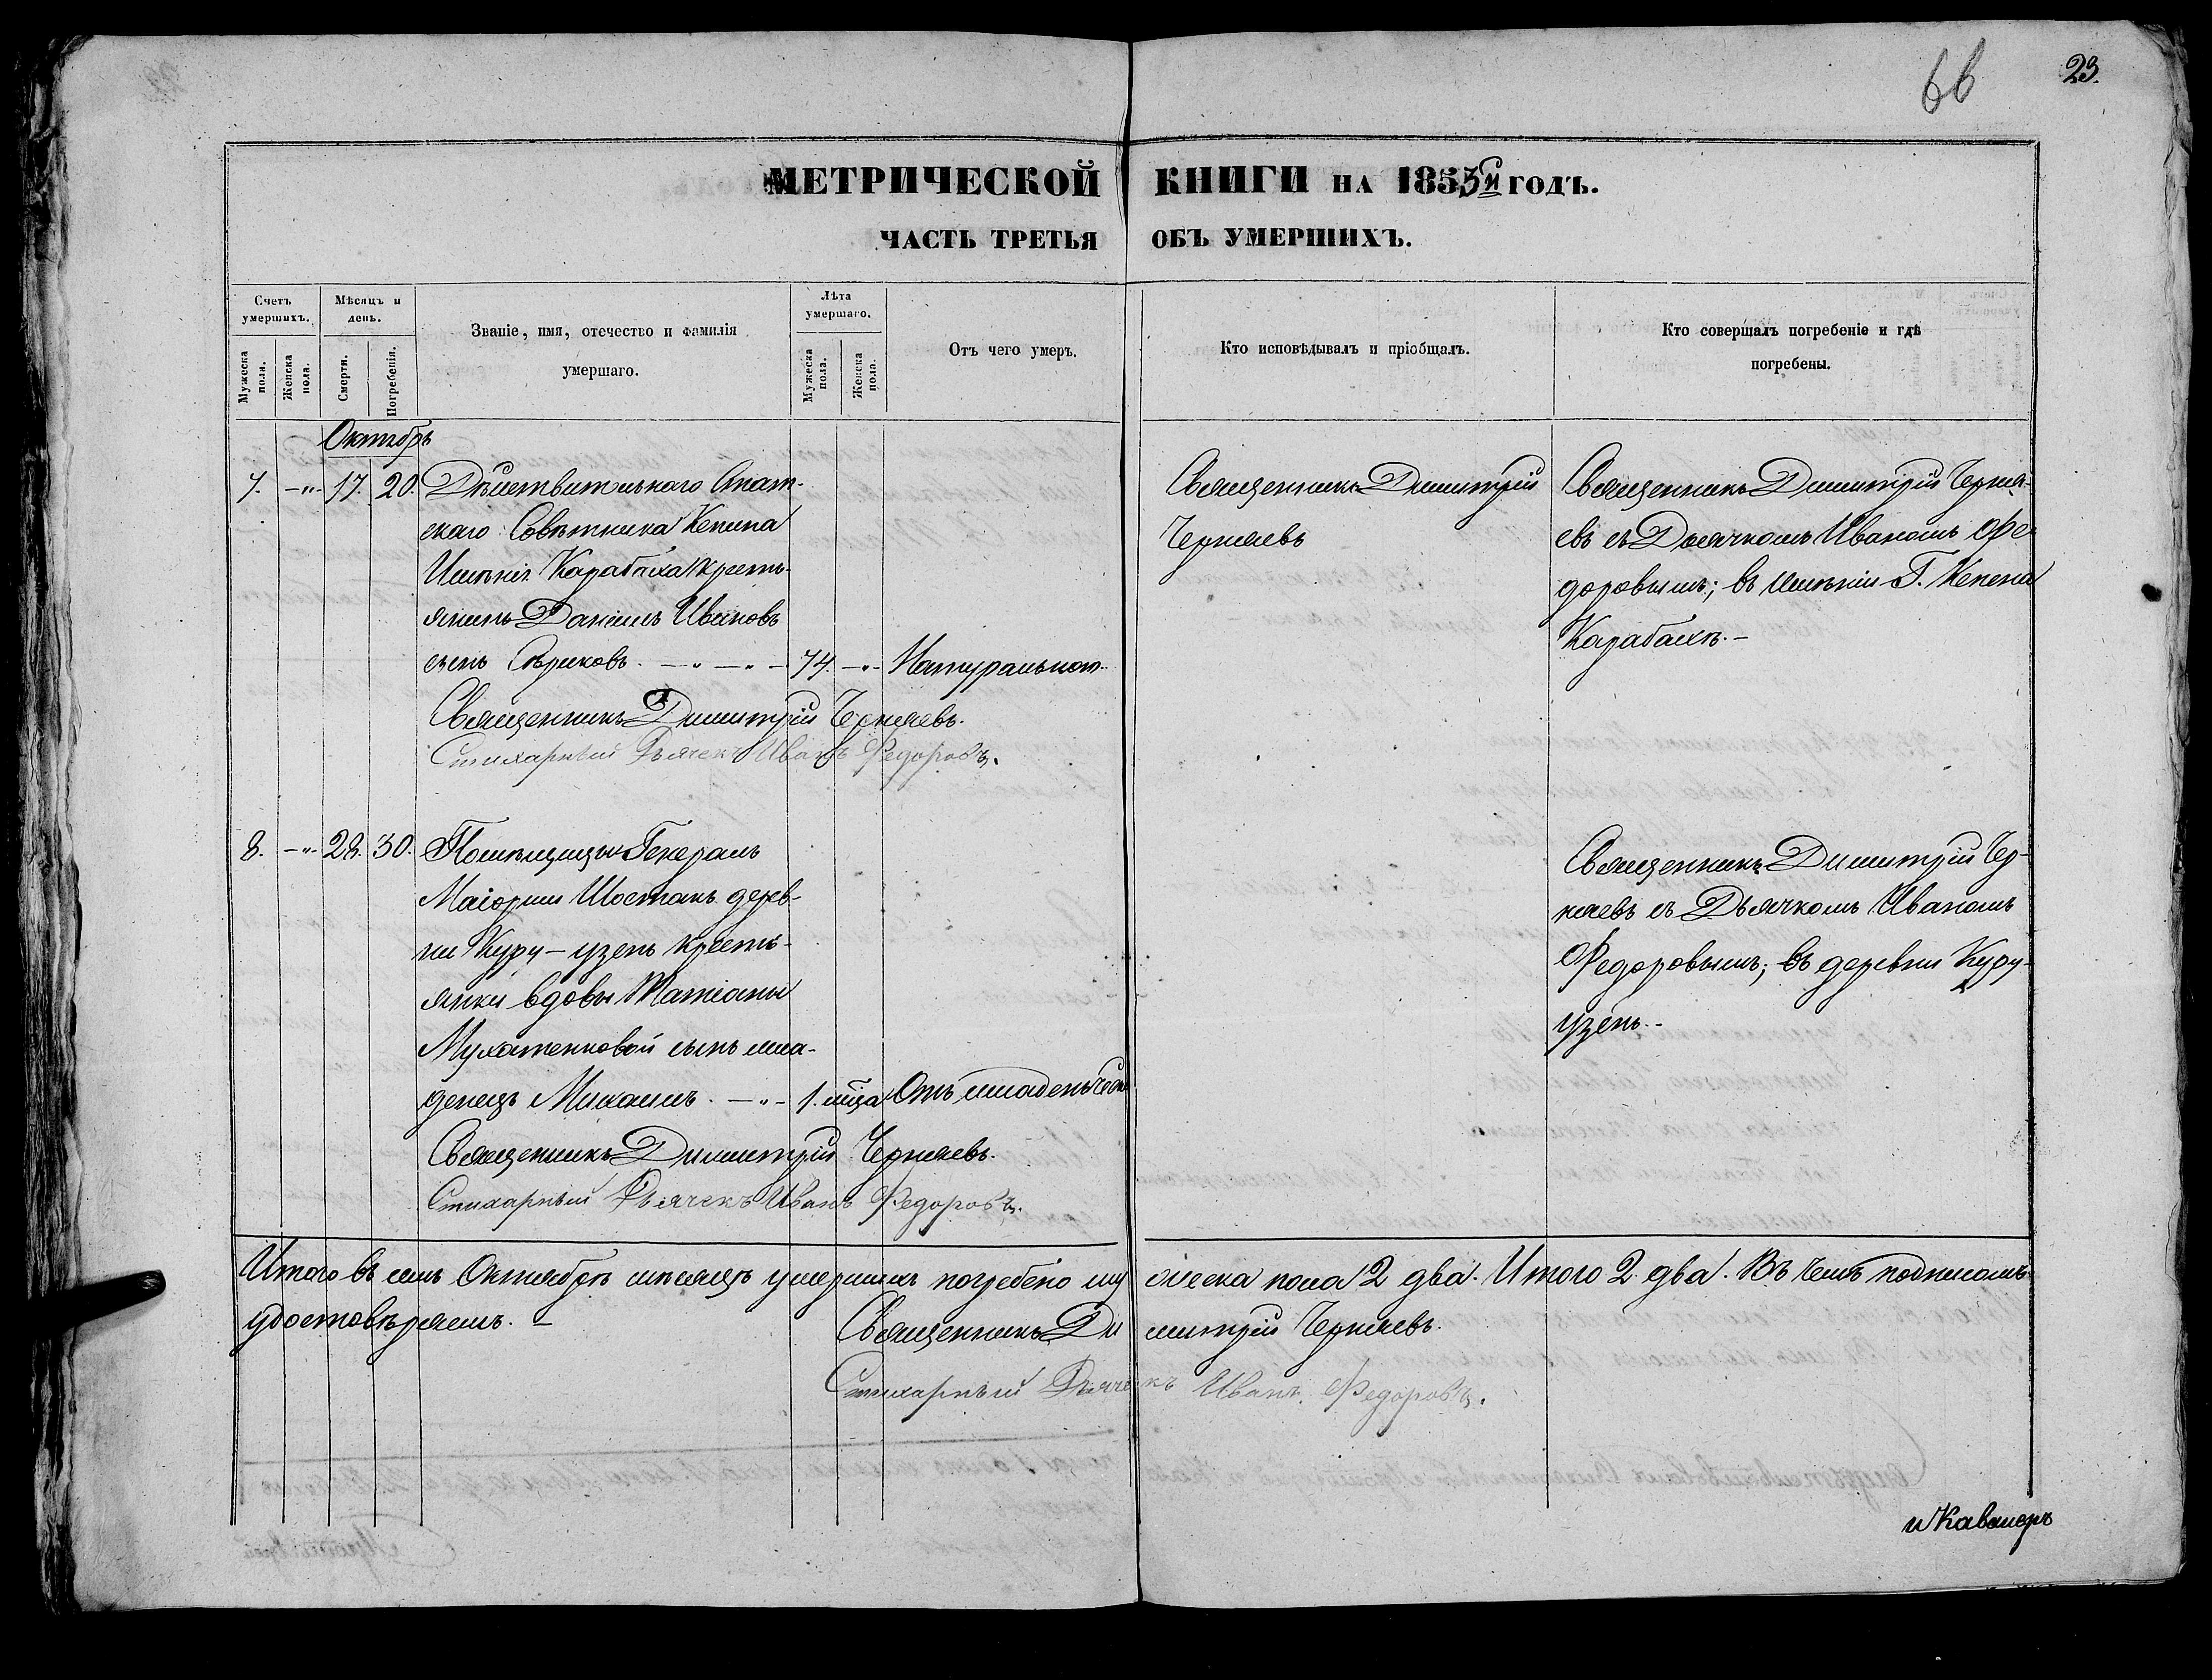 66
23.
МЕТРИЧЕСКОЙ КНИГИ НА 1853й ГОДЪ.
ЧАСТЬ ТРЕТЬЯ ОБЪ УМЕРШИХЪ.
Счетъ умершихъ.
Мужеска пола.
Женска пола.
Мѣсяцъ и день.
Смерти.
Погребенія.
Званіе, имя, отечество и фамилія умершаго.
Лѣта умершаго.
Мужеска пола.
Женска пола.
Отъ чего умеръ.
Кто исповѣдывалъ и пріобщалъ.
Кто совершалъ погребеніе и гдѣ погребены.
Октябрь
7. -"- 17. 20. Дѣйствительнаго Стат-
скаго Совѣтника Кепина
Имѣнія Карабаха кресть-
янинъ Даніилъ Ивановъ
сынъ -"-"- 74. -"- Натуральной
Священникъ Димитрій
Черняевъ
Священникъ Димитрій Черня-
евъ съ Дьячкомъ Иваномъ Фе-
доровымъ; въ имѣніи Г. Кепена
Карабахѣ.-
Священникъ Димитрій Черняевъ.
Стихарный Дьячекъ Иванъ Федоровъ.
8. -"- 28. 30. Помѣщицы Генералъ
Маіорши Шостакъ дерев-
ни Куру-узень кресть-
янки вдовы Татіаны
Мухатенковой сынъ мла-
денецъ Михаилъ. -"- 1. мѣца Отъ младенческой
Священникъ Димитрій Чер-
няевъ съ Дьячкомъ Иваномъ
Федоровымъ; въ деревни Куру-
узень.-
Священникъ Димитрій Черняевъ.
Стихарный Дьячекъ Иванъ Федоровъ.
Итого въ семъ Октябрѣ мѣсяцѣ умершихъ погребено мужеска пола 2 два. Итого 2 два. Въ чемъ подписомъ
удостовѣряемъ. -
Священникъ Димитрій Черняевъ.
Стихарный Дьячекъ Иванъ Федоровъ.
и Кавалеръ